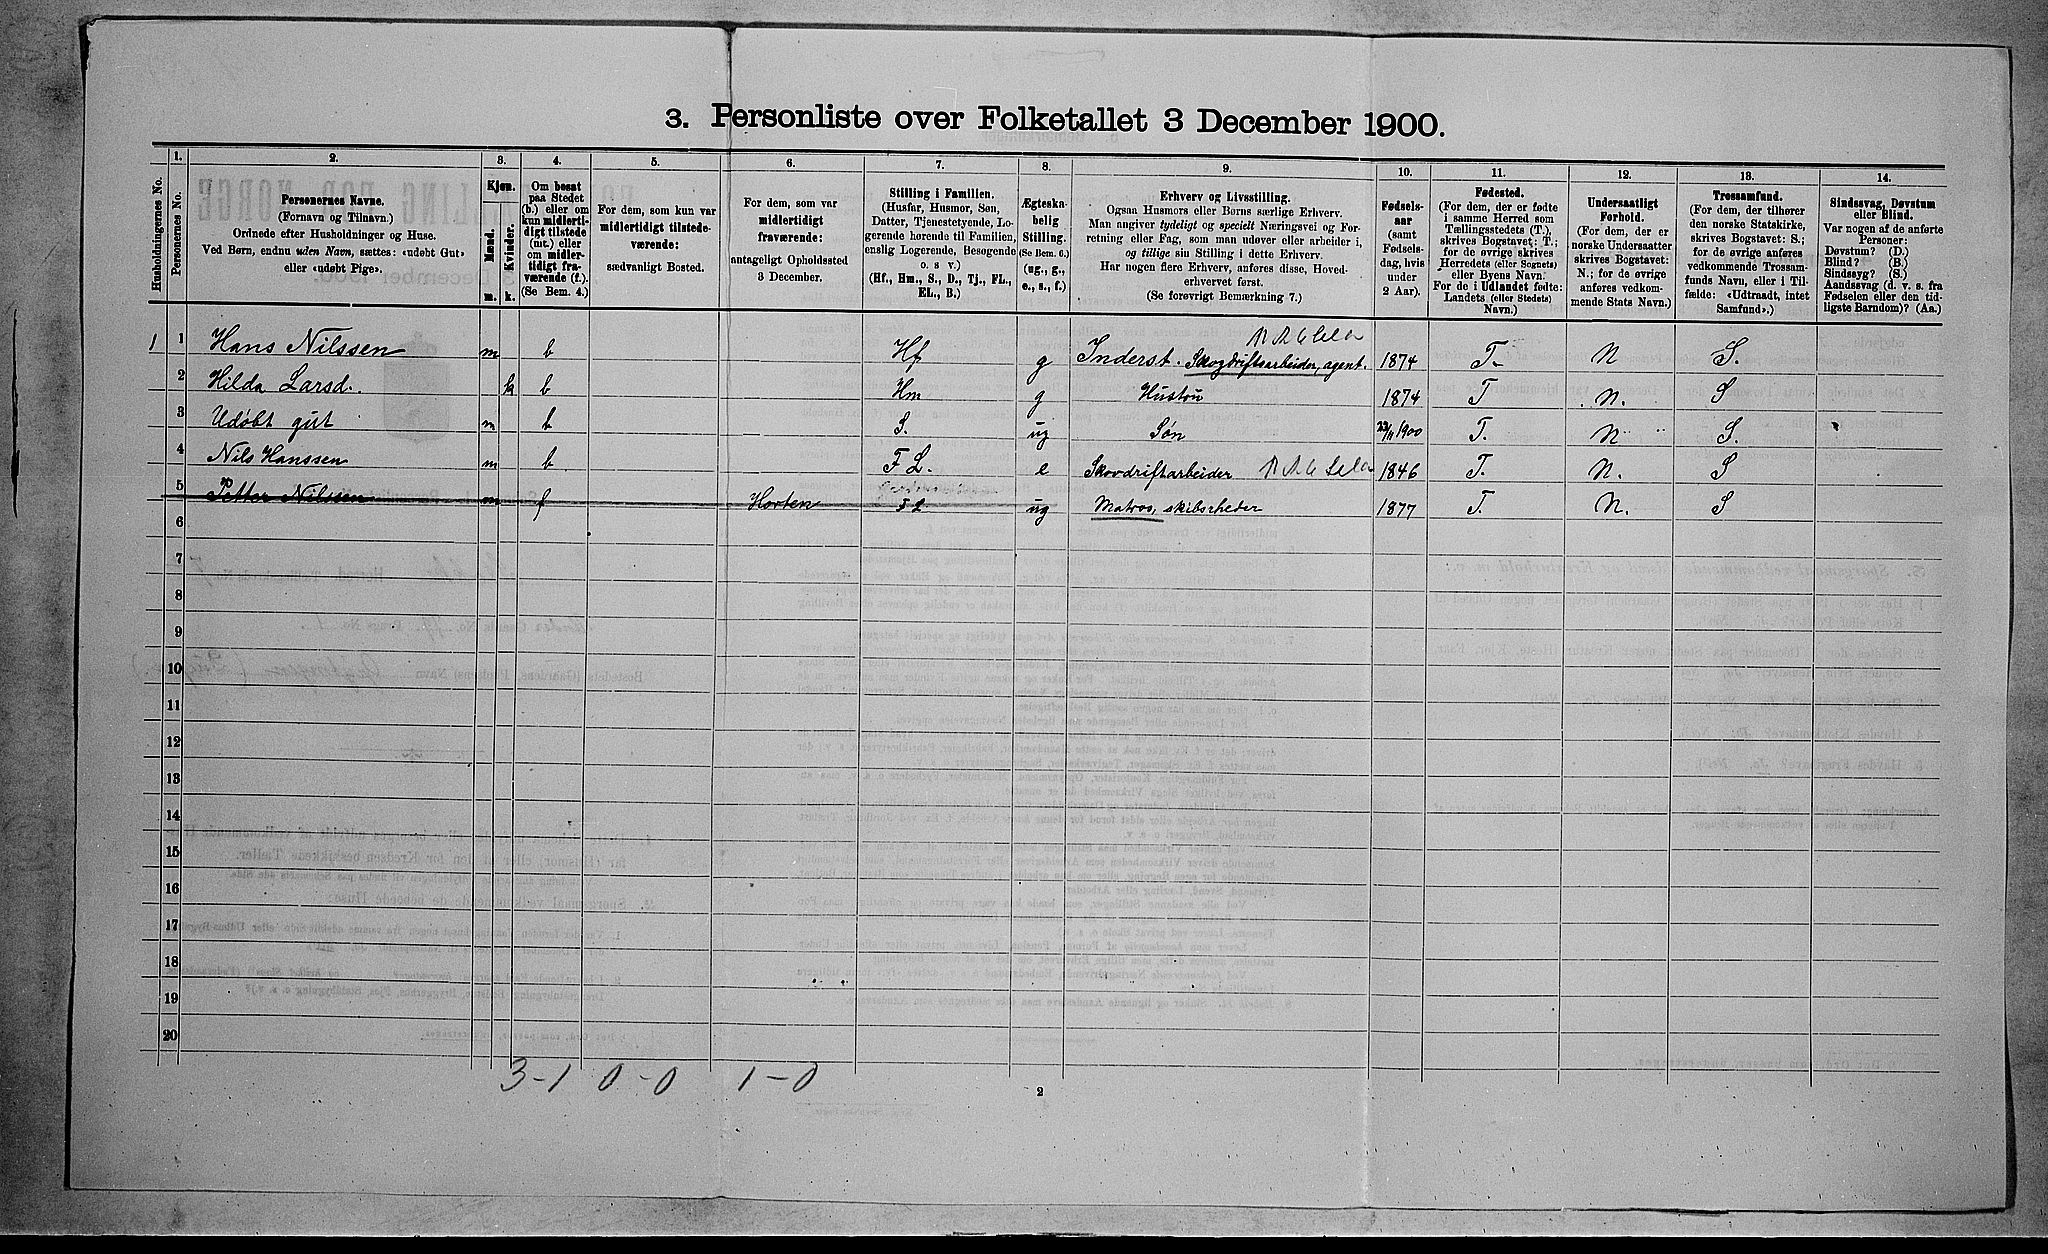 3. Personliste over Folketallet 3 December 1900.
1. 2. 3. 4. 5. 6. 7. 8. 9. 10. 11. 12. 13. 14.
Husholdningernes No.
Personernes No.
Personernes Navne.
(Fornavn og Tilnavn.)
Ordnede efter Husholdninger og Huse.
Ved Børn, endnu uden Navn, sættes: «udøbt Gut»
eller «udøbt Pige».
Kjøn.
Mænd.
Kvinder.
m. k.
Om bosat
paa Stedet
(b.) eller om
kun midlerti-
digt tilstede
(mt.) eller
om midler-
tidigt fra-
værende (f.).
(Se Bem. 4.)
For dem, som kun var
midlertidigt tilstede-
værende:
sædvanligt Bosted.
For dem, som var
midlertidigt
fraværende:
antageligt Opholdssted
3 December.
Stilling i Familien.
(Husfar, Husmor, Søn,
Datter, Tjenestetyende, Lo-
gerende hørende til Familien,
enslig Logerende, Besøgende
o. s v.)
(Hf, Hm., S., D., Tj., FL.,
EL., B.)
Ægteska-
belig
Stilling.
(Se Bem. 6.)
(ug., g.,
e., s., f.)
Erhverv og Livsstilling.
Ogsaa Husmors eller Børns særlige Erhverv.
Man angiver tydeligt og specielt Næringsvei og For-
retning eller Fag, som man udøver eller arbeider i,
og tillige sin Stilling i dette Erhverv.
Har nogen flere Erhverv, anføres disse, Hoved-
erhvervet først.
(Se forøvrigt Bemærkning 7.)
Fødsels-
aar
(samt
Fødsels-
dag, hvis
under
2 Aar).
Fødested.
(For dem, der er fødte
i samme Herred som
Tællingsstedets (T.),
skrives Bogstavet: T.;
for de øvrige skrives
Herredets (eller Sognets)
eller Byens Navn.
For de i Udlandet fødte:
Landets (eller Stedets)
Navn.)
Undersaatligt
Forhold.
(For dem, der er
norske Undersaatter
skrives Bogstavet:
N.; for de øvrige
anføres vedkom-
mende Stats Navn.)
Trossamfund.
(For dem, der tilhører
den norske Statskirke,
skrives Bogstavet: S.;
for de øvrige anføres
vedkommende Trossam-
funds Navn, eller i Til-
fælde: «Udtraadt, intet
Samfund».)
Sindssvag, Døvstum
eller Blind.
Var nogen af de anførte
Personer:
Døvstum? (D.)
Blind? (B.)
Sindssyg? (S.)
Aandssvag (d. v. s. fra
Fødselen eller den tid-
ligste Barndom)? (Aa.)
1 1 Hans Nilssen m b Hf g Inderst. Skogdriftsarbeider, agent. 1874 T. N S.
2 Hilda Larsd. k b Hm g Hustru 1874 T N. S
3 Udøbt gut m b S. ug Søn 23/11 1900 T. N S.
4 Nils Hanssen m b F L. e Skovdriftarbeider 1846 T. N. S
5 Petter Nilssen m f Horten F L ug Matros, skibsrheder 1877 T. N. S
6
7
8
9
10
11
12
13
14
15
16
17
18
19
20
3-1 0-0 1-0
2